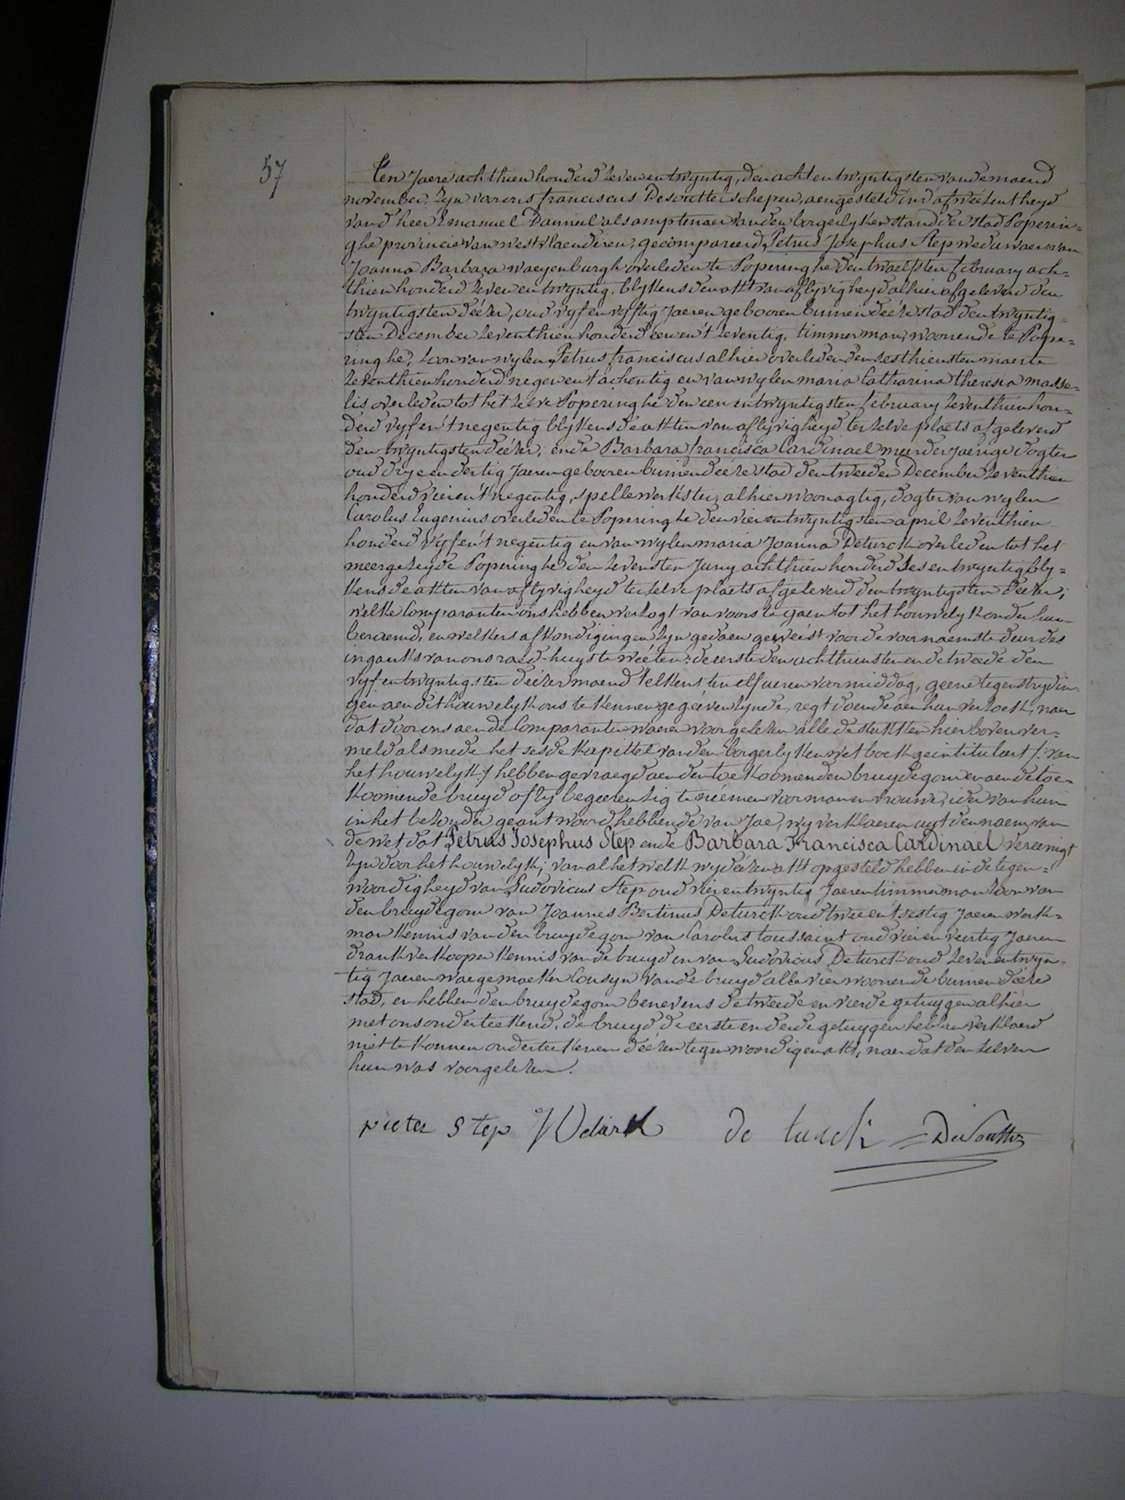 57
Ten Jaere achthien honderd zeven en twyntig, den acht en twyntigsten van de maend
november, zyn voor ons franciscus Desoutter schepen, aengesteld in d'afwezentheyd
van d'heer Emanuel Danneel als amptenaer van den borgerlyken stand der stad Poperin-
ghe provincie van westvlaenderen; gecompareerd, Petrus Josephus Step weduwaer van
Joanna Barbara waeyenburgh overleden te Poperinghe den twaelfsten february ach-
thien honderd zeven en twyntig, blykens den akt van aflyvigheyd alhier afgeleverd den
twyntigsten deézer, oud vyf en vyftig Jaeren gebooren binnen deéze stad den twyntig-
sten December zeventhien honderd een en't zeventig, timmerman, woonende te Pope-
ringhe, zoon van wylen Petrus franciscus alhier overleden den sesthiensten maerte
zeventhien honderd negen en't achentig en van wylen maria Catharina theresia masse-
lis overleden tot het zelve Poperinghe den een en twyntigsten february zeventhien hon-
derd vyf en't negentig blykens de akten van aflyvigheyd ter zelve plaets afgeleverd
den twyntigsten deézer, ende Barbara francisca Cardinael meerderjaerige dogter
oud drye en dertig Jaeren gebooren binnen deéze stad den tweeden December zeventhien
honderd vier en't negentig, spellewerkster, alhier woonagtig, dogter van wylen
Carolus Eugenius overleden te Poperinghe den vier en twyntigsten april zeventhien
honderd vyf en't negentig en van wylen maria Joanna Deturck overleden tot het
meergezeyde Poperinghe den zevensten Juny achthien honderd ses en twyntig bly-
kens de akten van aflyvigheyd ter zelve plaets afgeleverd den twyntigsten deézer;
welke Comparanten ons hebben verzogt van voorts te gaen tot het houwelyk onder hun
beraemd, en welkers afkondigingen zyn gedaen geweést voor de voornaemste deur des
ingank van ons raed-huys te weéten: de eerste den achthiensten en de tweede den
vyf en twyntigsten deézer maend telkens ten elf ueren voormiddag, geene tegenstrydin-
gen aen dit houwelyk ons te kennen gegeéven zynde, regt doende aen hun verzoek, naer
dat door ons aen de Comparanten waeren voorgelezen alle de stukken hier boven ver-
meld als mede het sesde kapittel van den borgerlyken wet boek geintituleert (: van
het houwelyk:) hebben gevraegd aen den toekoomenden bruydegom en aen de toe-
koomende bruyd of zy begeeren zig te neémen voor man en vrouwe, ider van hun
in het bezonder geantwoord hebbende van Jae, wy verklaeren uyt den naem van
de wet dat Petrus Josephus Step ende Barbara Francisca Cardinael vereenigt
zyn door het houwelyk; van al het welk wy deézen akt opgesteld hebben in de tegen-
woordigheyd van Ludovicus Step oud vier en twyntig Jaeren timmerman zoon van
den bruydegom van Joannes Bertinus Deturck oud twee en't sestig Jaeren werk-
man kennis van den bruydegom van Carolus toussaint oud vier en veertig Jaeren
drankverkooper kennis van de bruyd en van Ludovicus Deturck oud zeven en twyn-
tig Jaeren waegemaeker Cousyn van de bruyd alle vier woonende binnen deéze
stad, en hebben den bruydegom benevens de tweede en vierde getuygen alhier
met ons onderteekend, de bruyd, de eerste en derde getuygen hebben verklaerd
niet te konnen onderteekenen deézen tegenwoordigen akt, naer dat den zelven
hun was voorgelezen.
pieter Step de turck Desoutter